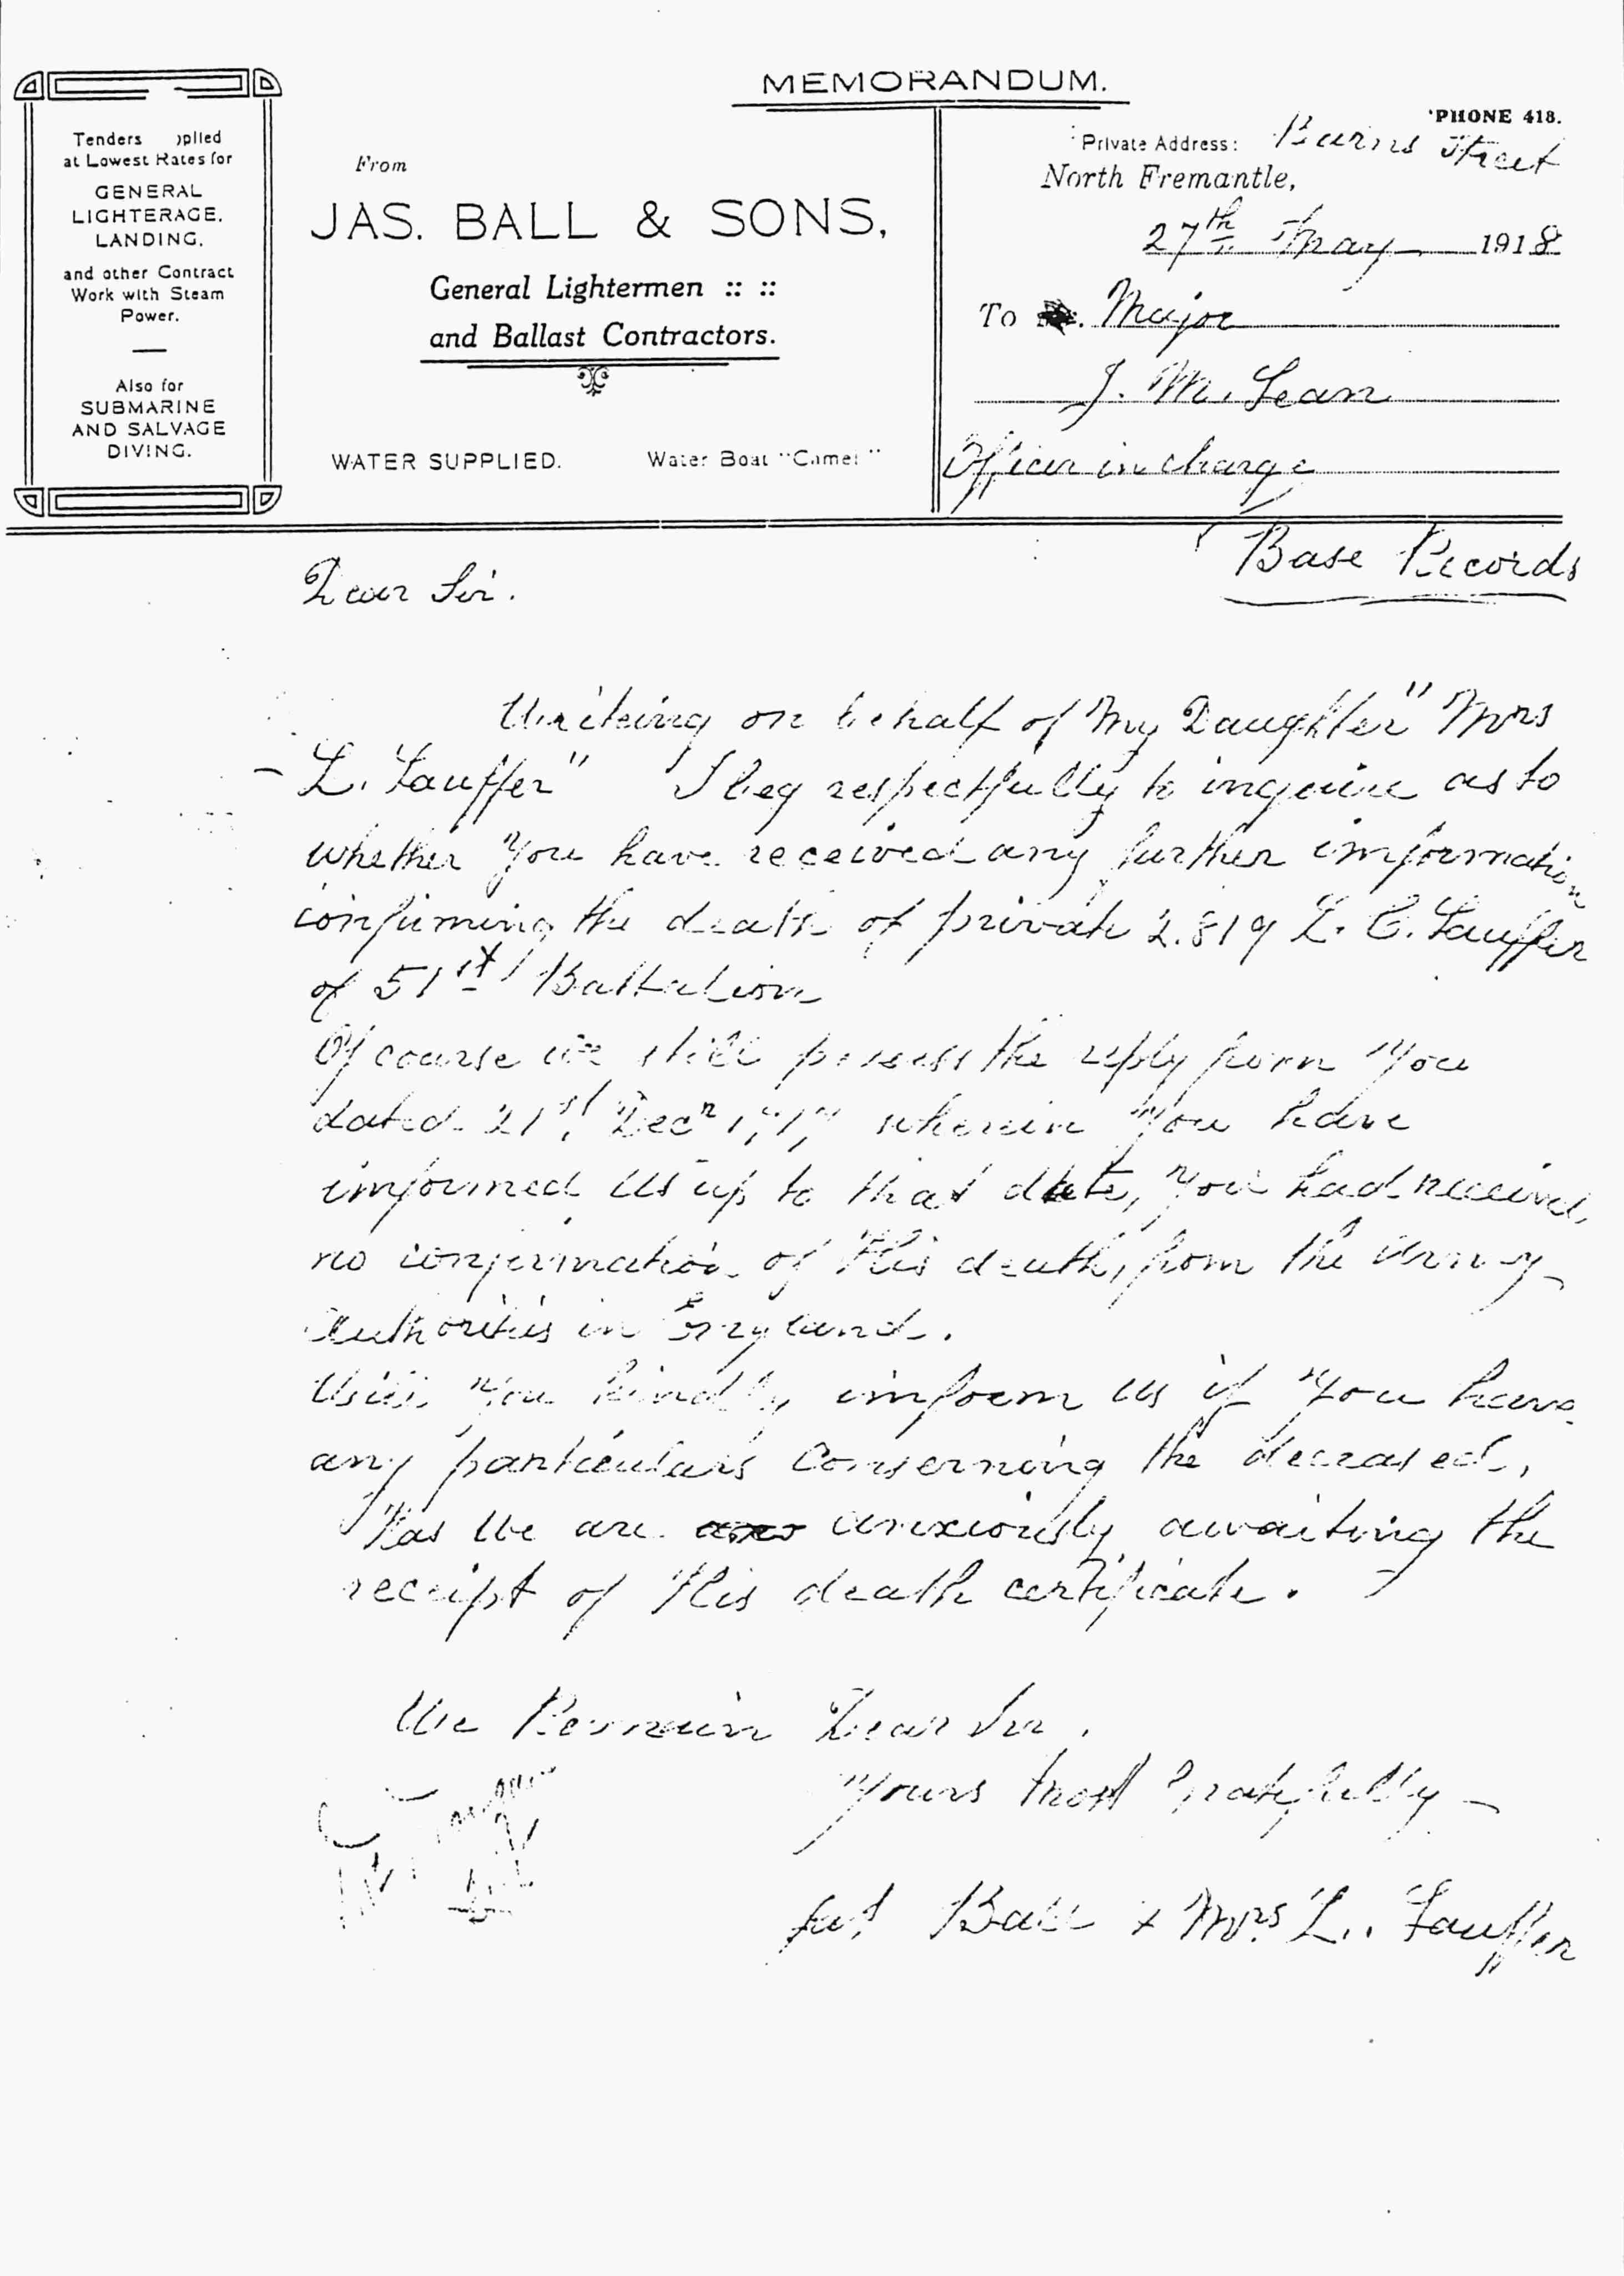 MEMORANDUM.
Tenders pplied
at Lowest Rates for
GENERAL
LIGHTERAGE,
LANDING,
and other Contract
Work with Steam
Power.
Also for
SUBMARINE
AND SALVAGE
DIVING.
From
JAS. BALL & SONS,
General Lightermen :: ::
and Ballast Contractors.
WATER SUPPLIED. Water Boat "Camel"
'PHONE 418.
Private Address: Burns Street
North Fremantle,
27th May 1918
To Major
J. McLean
Officer in charge
Base Records
Dear Sir.
Writeing on behalf of My Daughter "Mrs
L. Lauffer" I beg respectfully to inquire as to
whether you have received any further information
confirming the death of private 2.819 L. C. Lauffer
of 51st Battalion
Of course we still possess the reply from you
dated 21st Decr 1917 wherein you have
informed us up to that date, you had received
no confirmation of His death, from the army
authorities in England.
Will you kindly inform us if you have
any particulars Conserning the deceased,
Has We are anxiously awaiting the
receipt of His death certificate.
We Remain Dear Sir,
Yours Most Gratefully
Jas Ball & Mrs L. Lauffer